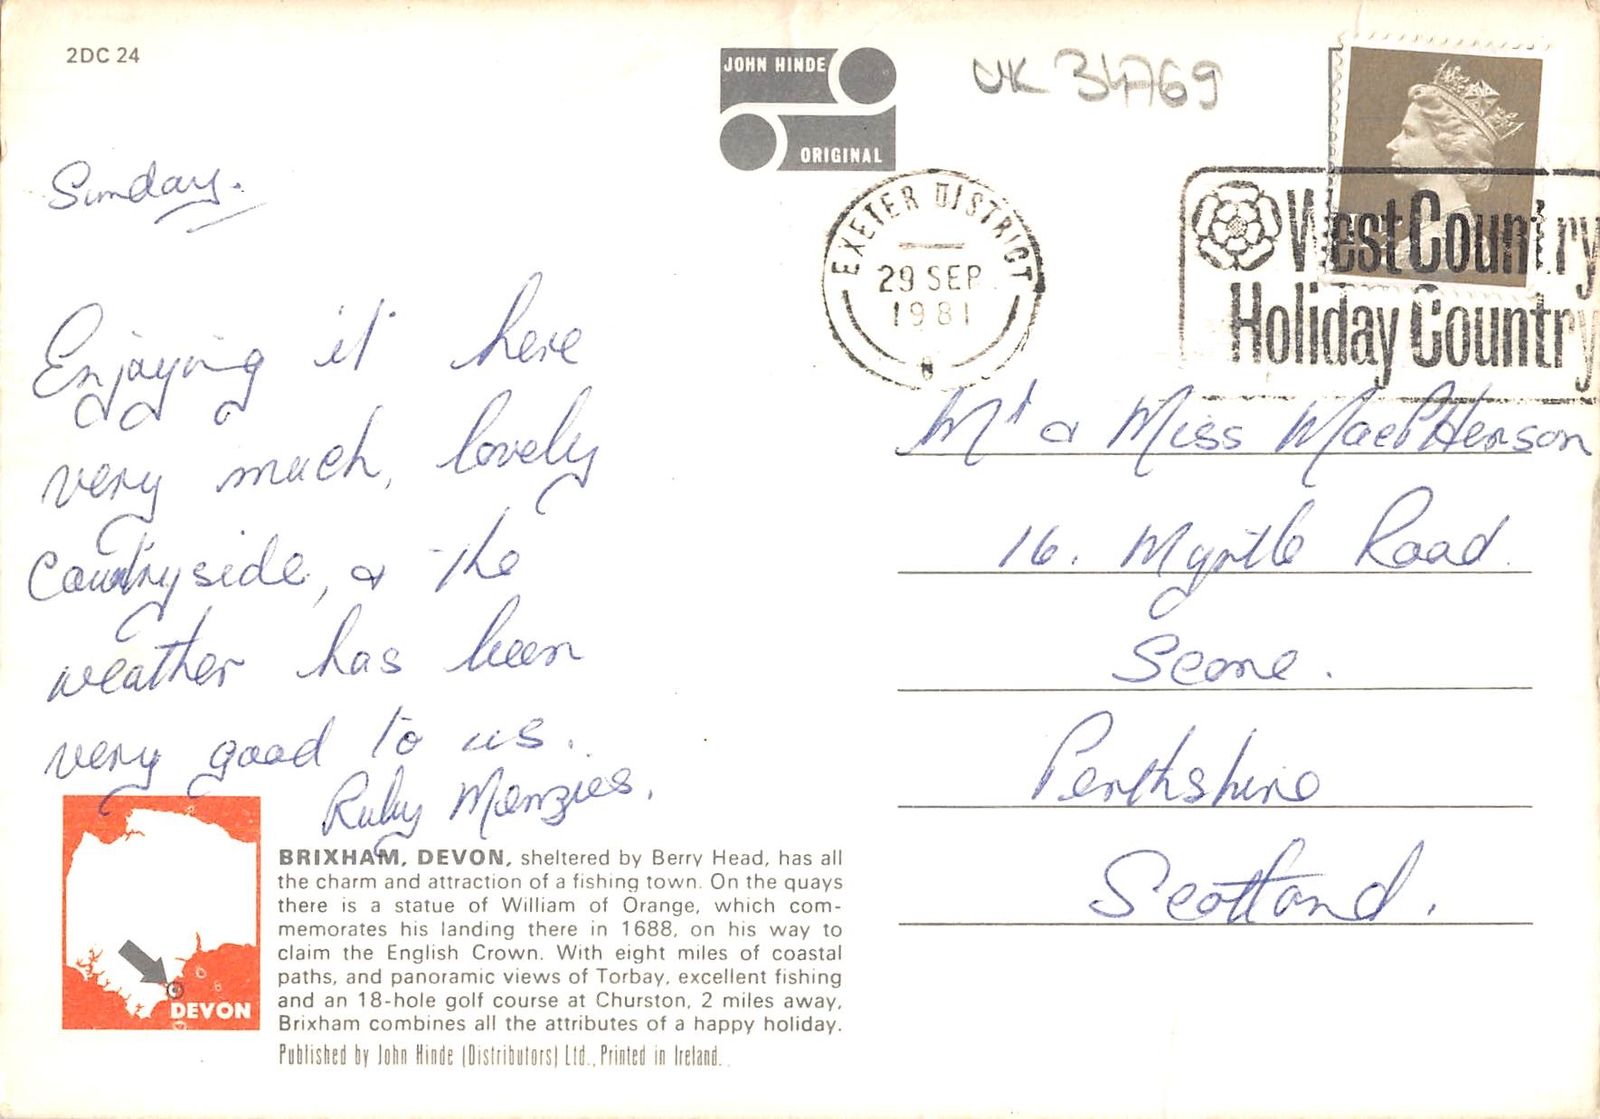 2DC 24
JOHN HINDE
ORIGINAL
UK 34769
EXETER DISTRICT
29 SEP
1981
West Country
Holiday Country
Sunday.
Enjoying it here
very much, lovely
Countryside, & the
weather has been
very good to us.
Ruby Menzies.
Mr & Miss MacPHerson
16. Myrtle Road.
Scone.
Perthshire
Scotland.
DEVON
BRIXHAM, DEVON, sheltered by Berry Head, has all
the charm and attraction of a fishing town. On the quays
there is a statue of William of Orange, which com-
memorates his landing there in 1688, on his way to
claim the English Crown. With eight miles of coastal
paths, and panoramic views of Torbay, excellent fishing
and an 18-hole golf course at Churston, 2 miles away,
Brixham combines all the attributes of a happy holiday.
Published by John Hinde (Distributors) Ltd., Printed in Ireland.